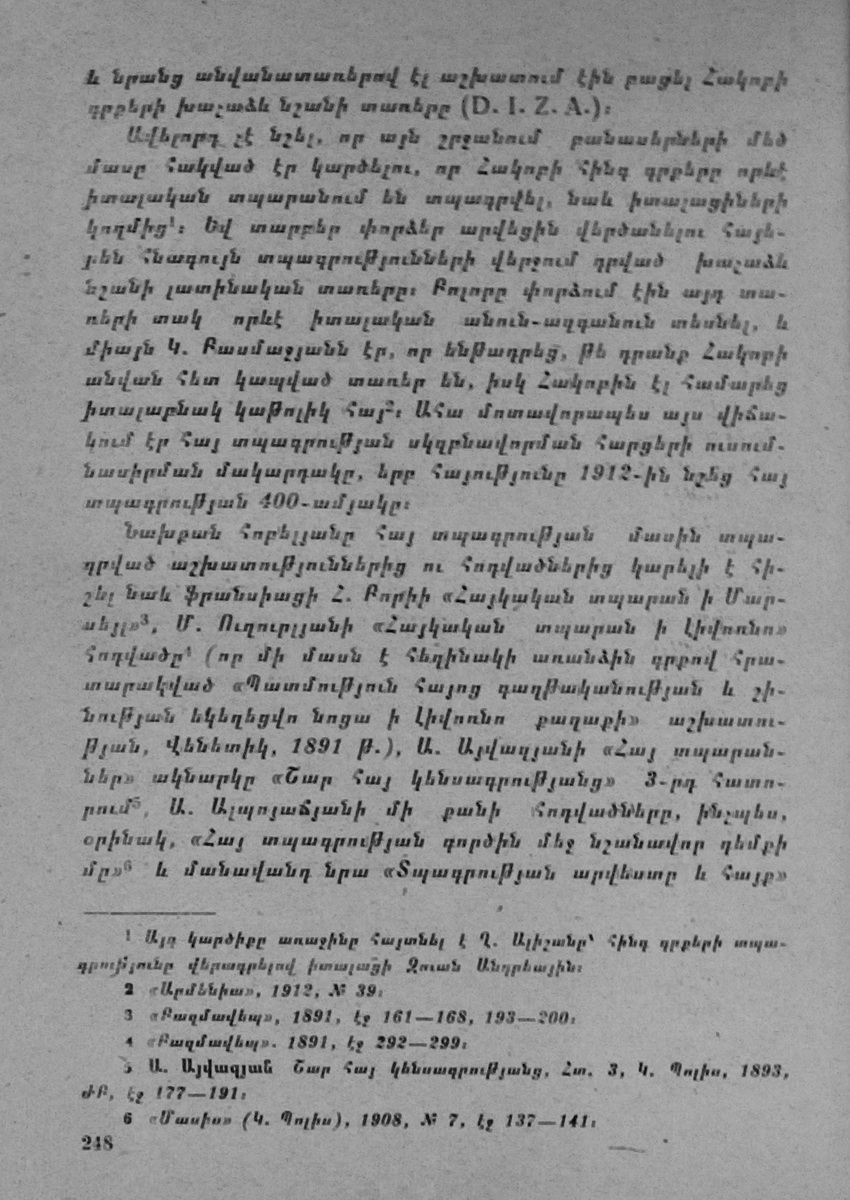 և նրանց անվանատառերով էլ աշխատում էին բացել Հակոբի
գրքերի խաչաձև նշանի տառերը (D. I. Z. A.)։
Ավելորդ չէ նշել, որ այն շրջանում բանասերների մեծ
մասը հակված էր կարծելու, որ Հակոբի հինգ գրքերը որևէ
իտալական տպարանում են տպագրվել, նաև իտալացիների
կողմից¹։ Եվ տարբեր փորձեր արվեցին վերծանելու հայե-
րեն հնագույն տպագրությունների վերջում դրված խաչաձև
նշանի լատինական տառերը։ Բոլորը փորձում էին այդ տա-
ռերի տակ որևէ իտալական անուն-ազգանուն տեսնել, և
միայն Կ. Բասմաջյանն էր, որ ենթադրեց, թե դրանք Հակոբի
անվան հետ կապված տառեր են, իսկ Հակոբին էլ համարեց
իտալաբնակ կաթոլիկ հայ²։ Ահա մոտավորապես այս վիճա-
կում էր հայ տպագրության սկզբնավորման հարցերի ուսում-
նասիրման մակարդակը, երբ հայությունը 1912-ին նշեց հայ
տպագրության 400-ամյակը։
Նախքան հոբելյանը հայ տպագրության մասին տպա-
գրված աշխատություններից ու հոդվածներից կարելի է հի-
շել նաև ֆրանսիացի Հ. Բորիի «Հայկական տպարան ի Մար-
սեյլ»³, Մ. Ուղուրլյանի «Հայկական տպարան ի Լիվոռնո»
հոդվածը⁴ (որ մի մասն է հեղինակի առանձին գրքով հրա-
տարակված «Պատմություն հայոց գաղթականության և շի-
նության եկեղեցվո նոցա ի Լիվոռնո քաղաքի» աշխատու-
թյան, Վենետիկ, 1891 թ.), Ա. Այվազյանի «Հայ տպարան-
ներ» ակնարկը «Շար հայ կենսագրությանց» 3-րդ հատո-
րում⁵, Ա. Ալպոյաճյանի մի քանի հոդվածները, ինչպես,
օրինակ, «Հայ տպագրության գործին մեջ նշանավոր դեմքի
մը»⁶ և մանավանդ նրա «Տպագրության արվեստը և հայք»
¹ Այդ կարծիքը առաջինը հայտնել է Ղ. Ալիշանը՝ հինգ գրքերի տպա-
գրությունը վերագրելով իտալացի Զուան Անդրեային։
2 «Արմենիա», 1912, № 39։
3 «Բազմավեպ», 1891, էջ 161—168, 193—200։
4 «Բազմավեպ». 1891, էջ 292—299։
5 Ա. Այվազյան Շար հայ կենսագրությանց, Հտ. 3, Կ. Պոլիս, 1893,
ԺԲ, էջ 177—191։
6 «Մասիս» (Կ. Պոլիս), 1908, № 7, էջ 137—141։
248